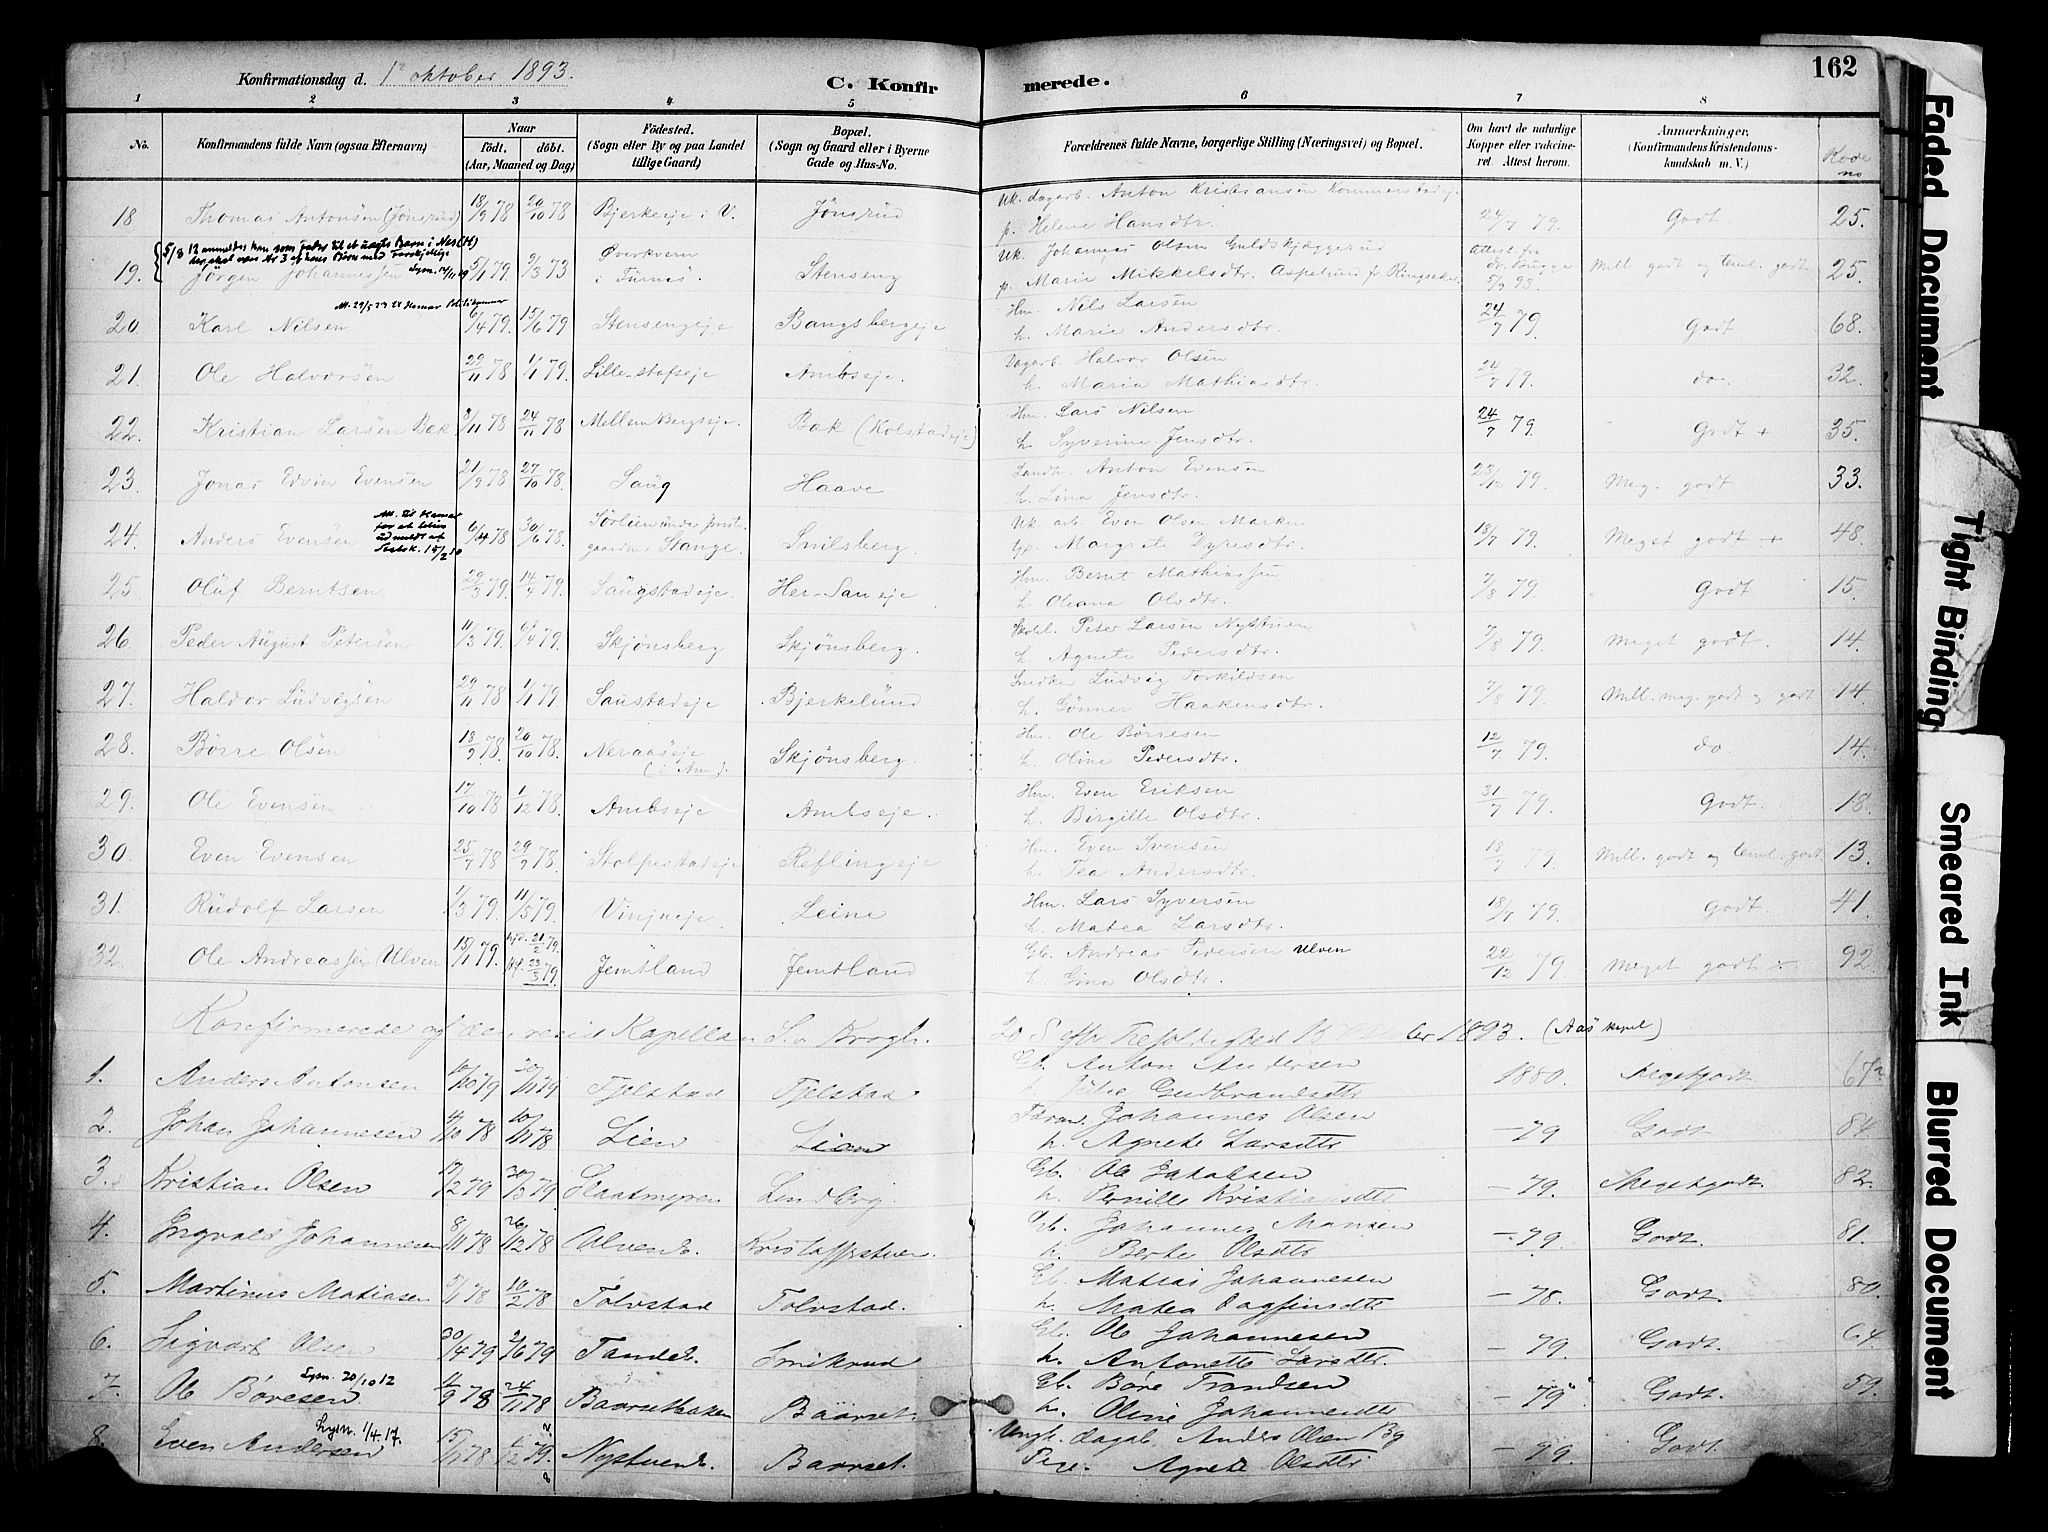 Konfirmationsdag d. 1 oktober 1893. C. Konfirmerede. 162
1 2 3 4 5 6 7 8
No. Konfirmandens fulde Navn (ogsaa Efternavn) Naar født, døbt. (Aar, Maaned og Dag) Födested. (Sogn eller By og paa Landet tillige Gaard) Bopæl. (Sogn og Gaard eller i Byerne Gade og Hus-No. Forældrenes fulde Navne, borgerlige Stilling (Næringsvei) og Bopæl. Om havt de naturlige Kopper eller vaccineret. Attest herom. Anmærkninger. (Konfirmandens Kristendomskundskab m. V.) Kode no
18 Thomas Antonsen (Jönsrud) 18/9 78 20/10 78 Bjerkeeje i V. Jönsrud Uk. dagarb. Anton Kristiansen
p. Helene Hansdtr. 24/7 79. Godt 25.
19. Jörgen Johannessen 5/1 79 Øverkvern i Furnes Stenseng Uk. Johannes Olsen Guldskjæggerud
p. Marie Mikkelsdtr. 5/9 93. Mell. godt og teml. godt 25.
20. Karl Nilsen 6/4 79. 15/6 79 Stensengeje Bangsbergeje Hm. Nils Larsen
h. Marie Andersdtr. 24/7 79. Godt 68.
21. Ole Halvorsen 29/11 78 1/1 79. Lille-stafseje Ambseje. Halvor Olsen
h. Maria Mathiasdtr. 24/7 79. do. 32.
22. Kristian Larsen Bæk 3/11 78 24/11 78 Mellem Bergseje. Bæk (Kolstadeje) Hm. Lars Nilsen
h. Syverine Jensdtr. 24/7 79. Godt + 35.
23. Jonas Edvin Evensen 21/9 78 27/10 78. Saug Haave Anton Evensen
h. Lina Jensdtr. 23/12 79 Meg. godt 33.
24. Anders Evensen 6/4 78 30/6 78. Stange. Snilsberg. Uk. arb. Even Olsen
Margrete 18/7 79. Meget godt + 48.
25 Oluf Berntsen 29/3 79. 14/4 79. Saugstadeje. Her-Saueje Hm. Bernt Mathiassen
h. Oleana Olsdtr. 7/8 79. Godt 15.
26 Peder August Petersen 11/3 79. Skjönsberg Skjönsberg. Peter Larsen Nystuen
h. Agnete Pedersdtr. 7/8 79. Meget godt. 14.
27. Haldor Ludvigsen 29/11 78 1/1 79. Saustadeje Bjerkelund Snedker Ludvig Torkildsen
h. Gönner Haakensdtr. 7/8 79. Mell. meg. godt og godt 14.
28. Börre Olsen 18/9 78 20/10 78. Neraaseje Skjönsberg. Hm. Ole Börresen
h. Oline Pedersdtr. 12/7 79. do. 14.
29. Ole Evensen 17/10 78 1/12 78. Ambseje Ambseje. Hm. Even Eriksen
h. Birgitte Olsdtr. 31/7 79. Godt. 18.
30. Even Evensen 25/7 78 29/9 78. Stolpestadeje Reflingeje Hm. Even Svensen
h. Tea Andersdtr. 18/7 79. Mell. godt og teml. godt 13.
31. Rudolf Larsen 1/3 79. 11/5 79. Vinjueje Leine Hm. Lars Syversen
h. Matea Larsdtr. 18/7 79. Godt. 41.
32. Ole Andreassen Ulven 15/1 79. hjd. 21/2 79. 23/3 79. Jemtland Jemtland Gb. Andreas Pedersen Ulven
h. Gina Olsdtr. 22/12 79 Meget godt 92.
Konfirmerede af den resid Kapellan S. v. Krogh. 20 S efter Trefoldighed 1893. (Aas kapel)
1. Anders Antonsen 10/10 79 20/11 79 Fjelstad Fjelstad Gb. Anton Andersen
h. Julie Gudbrandsdtr 1880. Megetgodt 67
2. Johan Johannesen 4/10 78 10/11 78 Lien Lien Johannes Olsen
h. Agnete Larsdtr — 79 Godt 84.
3. Kristian Olsen 17/2 79 30/3 79 Slaatmyren Lindberg Gb. Ole Jakobsen
h. Pernille Kristiansdtr — 79. Megetgodt. 82.
4. Ingvald Johannesen 8/11 78 26/12 78 Alvene. Kristoffstuen. Gb. Johannes Monsen
h. Berte Olsdtr — 79. Godt. 81.
5. Martinus Matiasen 5/1 78 10/2 78 Tolvstad Tolvstad. Gb. Matias Johannesen
h. Matea Dagfinsdtr — 78. Godt. 80.
6. Sigvart Olsen 30/4 79 2/6 79 Tande. Smikrud Gb. Ole Johannesen
h. Antonette Larsdtr. — 79 Godt. 64.
7. Ole Børesen Lysn. 20/10 12 11/9 78 24/11 78 Baarsetbaken Baarset. Gb. Børe Trondsen
h. Oline Johannesdtr — 79 Godt. 59.
8. Even Andersen Lysn. 1/4. 17. 15/11 78 1/12 79. Nystuen. Baarset. Ungk. dagab. Anders Olsen
Pige. Agnete Olsdtr — 79. Godt.
Faded Document
Tight Binding
Smeared Ink
Blurred Document